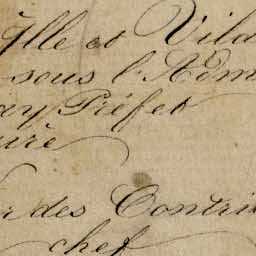 Ille et Vila
sous l'Adm
ay Préfet
ire
r des Contri
chef